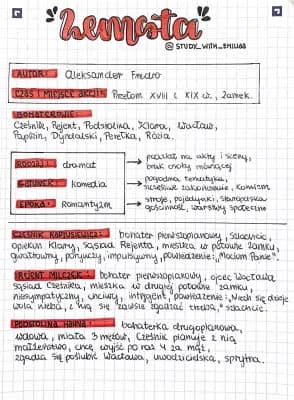 "Zemsta"
@ STUDY_WITH_EMILAA
AUTOR: Aleksander Fredro
CZAS I MIEJSCE AKCJI: Przełom XVIII i XIX w., Zamek.
BOHATEROWIE:
Cześnik, Rejent, Podstolina, Klara, Wacław,
Papkin, Dyndalski, Perełka, Rózia.
RODZAJ: dramat
podział na akty i sceny,
brak osoby mówiącej
GATUNEK: komedia
pogodna tematyka,
szczęśliwe zakończenie, komizm
EPOKA: Romantyzm
stroje, pojedynki, staropolska
gościnność, warstwy społeczne
CZEŚNIK RAPTUSIEWICZ: bohater pierwszoplanowy, szlachcic,
opiekun Klary, sąsiad Rejenta, mieszka w połowie zamku,
gwałtowny, porywczy, impulsywny, powiedzenie: „Mocium Panie".
REJENT MILCZEK: bohater pierwszoplanowy, ojciec Wacława
sąsiad Cześnika, mieszka w drugiej połowie zamku,
niesympatyczny, chciwy, intrygant, powiedzenie: „Niech się dzieje
wola nieba, z nią się zawsze zgadzać trzeba," szlachcic.
PODSTOLINA HANNA: bohaterka drugoplanowa,
wdowa, miała 3 mężów, Cześnik planuje z nią
małżeństwo, chce wyjść po raz 4 za mąż,
zgadza się poślubić Wacława, uwodzicielska, sprytna.